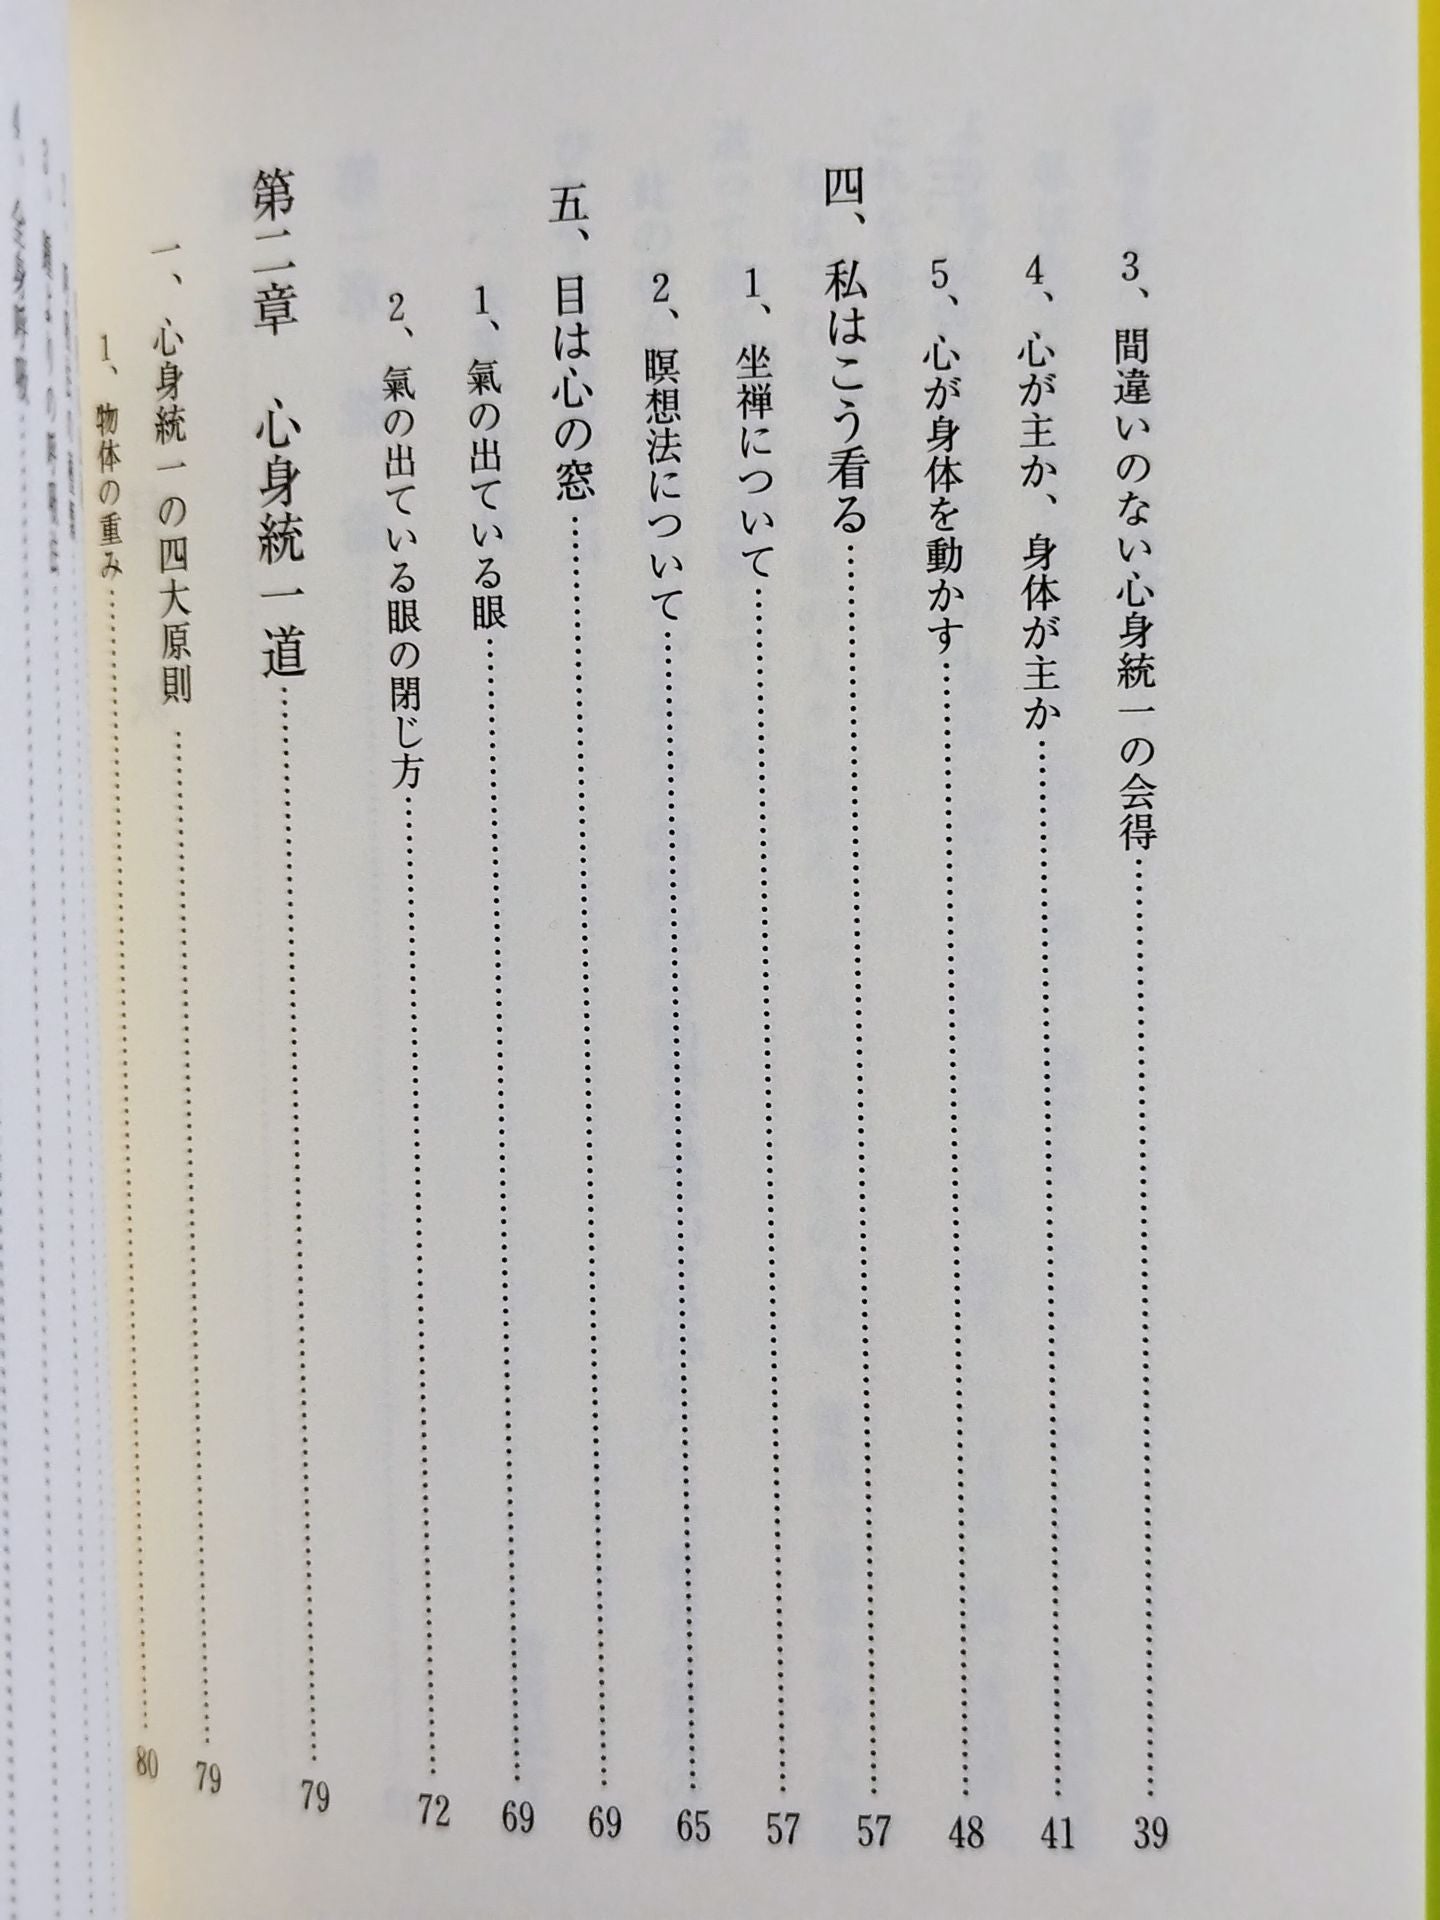 3、間違いのない心身統一の会得……39
4、心が主か、身体が主か……41
5、心が身体を動かす……48
四、私はこう看る……57
1、坐禅について……57
2、瞑想法について……65
五、目は心の窓……69
1、氣の出ている眼……69
2、氣の出ている眼の閉じ方……72
第二章 心身統一道……79
一、心身統一の四大原則……79
1、物体の重み……80